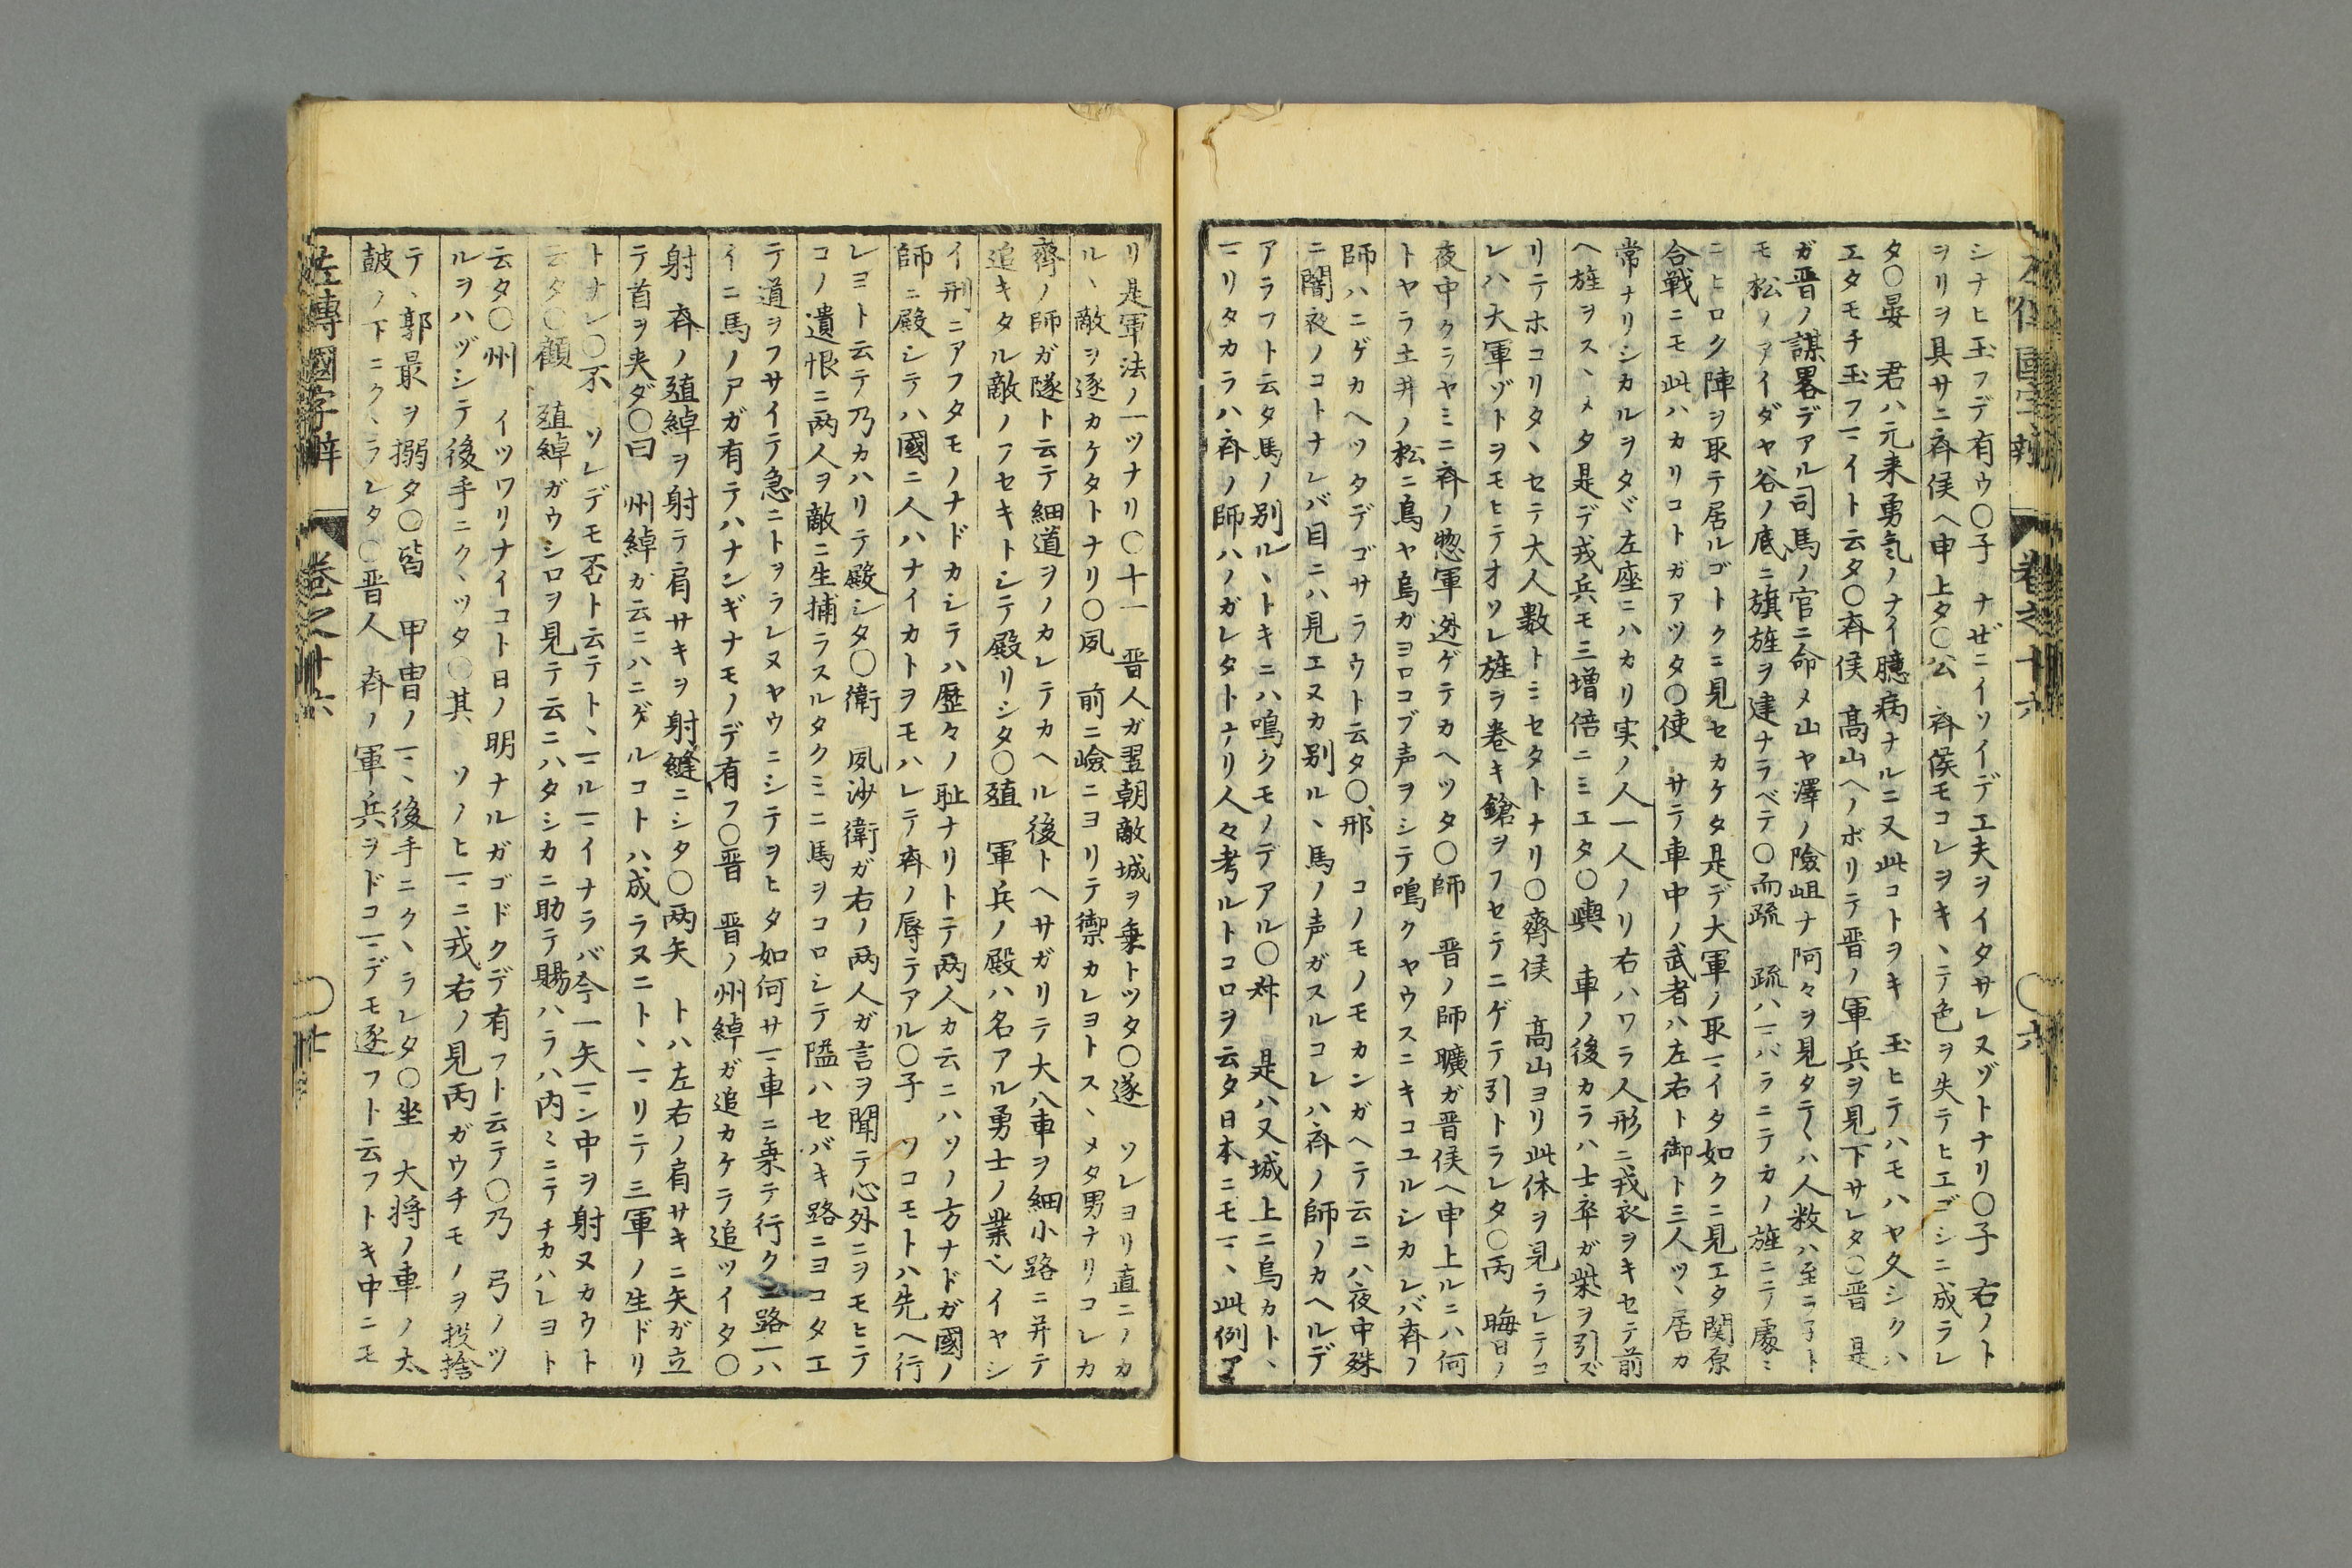 左傳國字辯 卷之十六 ○六
シナヒ玉フデ有ウ○子 ナゼニイソイデ工夫ヲイタサレヌゾトナリ○子 右ノト
ヲリヲ具サニ斉侯ヘ申上タ○公 斉侯モコレヲキヽテ色ヲ失テヒエゴシニ成ラレ
タ○晏 君ハ元来勇気ノナイ臆病ナルニ又此コトヲキ 玉ヒテハモハヤ久シクハ
エタモチ玉フヿイト云タ○斉侯 髙山ヘノボリテ晋ノ軍兵ヲ見下サレタ○晋 是
ガ晋ノ謀畧デアル司馬ノ官ニ命メ山ヤ澤ノ險岨ナ阿々ヲ見タテヽハ人数ハ至ラ子ト
モ松ノアイダヤ谷ノ底ニ旗旌ヲ建ナラベテ○而疏 疏ハヿバラニテカノ旌ニテ處ミ
ニヒロク陣ヲ取テ居ルゴトクニ見セカケタ是デ大軍ノ取ヿイタ如クニ見エタ関原
合戰ニモ此ハカリコトガアツタ○使 サテ車中ノ武者ハ左右ト御ト三人ツヽ居カ
常ナリシカルヲタヾ左座ニハカリ実ノ人一人ノリ右ハワラ人形ニ戎衣ヲキセテ前
ヘ旌ヲスヽメタ是デ戎兵モ三増倍ニミエタ○輿 車ノ後カラハ士卒ガ柴ヲ引ズ
リテホコリタヽセテ大人数トミセタトナリ○齊侯 髙山ヨリ此体ヲ見ラレテコ
レハ大軍ゾトヲモヒテオソレ旌ヲ巻キ鎗ヲフセテニゲテ引トラレタ○丙 晦日ノ
夜中クラヤミニ斉ノ惣軍迯ゲテカヘツタ○師 晋ノ師曠ガ晋侯ヘ申上ルニハ何
トヤラ土井ノ松ニ烏ヤ烏ガヨロコブ声ヲシテ鳴クヤウスニキコユルシカレバ斉ノ
師ハニゲカヘツタデゴサラウト云タ○邢 コノモノモカンガヘテ云ニハ夜中殊
ニ闇夜ノコトナレバ目ニハ見エヌカ別ルヽ馬ノ声ガスルコレハ斉ノ師ノカヘルデ
アラフト云タ馬ノ別ルヽトキニハ鳴クモノデアル○叔 是ハ又城上ニ烏カトヽ
ヿリタカラハ斉ノ師ハノガレタトナリ人々考ルトコロヲ云タ日本ニモヿヽ此例アリ
リ是軍法ノ一ツナリ○十一 晋人ガ翌朝敵城ヲ乗トツタ○遂 ソレヨリ直ニノカ
ルヽ敵ヲ逐カケタトナリ○夙 前ニ嶮ニヨリテ禦カレヨトスヽメタ男ナリコレカ
齊ノ師ガ隧ト云テ細道ヲノカレテカヘル後トヘサガリテ大八車ヲ細小路ニ幷テ
追キタル敵ノフセキトシテ殿リシタ○殖 軍兵ノ殿ハ名アル勇士ノ業ヘイヤシ
イ刑ニアフタモノナドカシテハ歴々ノ耻ナリトテ両人カ云ニハソノ方ナドガ國ノ
師ニ殿シテハ國ニ人ハナイカトヲモハレテ斉ノ辱テアル○子 ソコモトハ先ヘ行
レヨト云テ乃カハリテ殿シタ○衛 夙沙衛ガ右ノ両人ガ言ヲ聞テ心外ニヲモヒテ
コノ遺恨ニ両人ヲ敵ニ生捕ラスルタクミニ馬ヲコロシテ隘ハセバキ路ニヨコタエ
テ道ヲフサイテ急ニトヲラレヌヤウニシテヲヒタ如何サヿ車ニ乗テ行ク三路一ハ
イニ馬ノアガ有テハナンギナモノデ有フ○晋 晋ノ州綽ガ追カケテ追ツイタ○
射 斉ノ殖綽ヲ射テ肩サキヲ射縫ニシタ○両矢 トハ左右ノ肩サキニ矢ガ立
テ首ヲ夾ダ○曰 州綽カ云ニハニゲルコトハ成ラヌニトヽヿリテ三軍ノ生ドリ
トナレ○不 ソレデモ否ト云テトヽヿルヿイナラバ今一矢ヿン中ヲ射ヌカウト
云タ○顧 殖綽ガウシロヲ見テ云ニハタシカニ助テ賜ハラハ内ミニテチカハレヨト
云タ○州 イツワリナイコト日ノ明ナルガゴドクデ有フト云テ○乃 弓ノツ
ルヲハヅシテ後手ニクヽツタ○其 ソノヒヿニ戎右ノ見丙ガウチモノヲ投捨
テヽ郭最ヲ搦タ○皆 甲冑ノヿヽ後手ニクヽラレタ○坐 大将ノ車ノ太
皷ノ下ニクヽラレタ○晋人 斉ノ軍兵ヲドコヿデモ逐フト云フトキ中ニモ
左傳國字辯 卷之十六 ○七